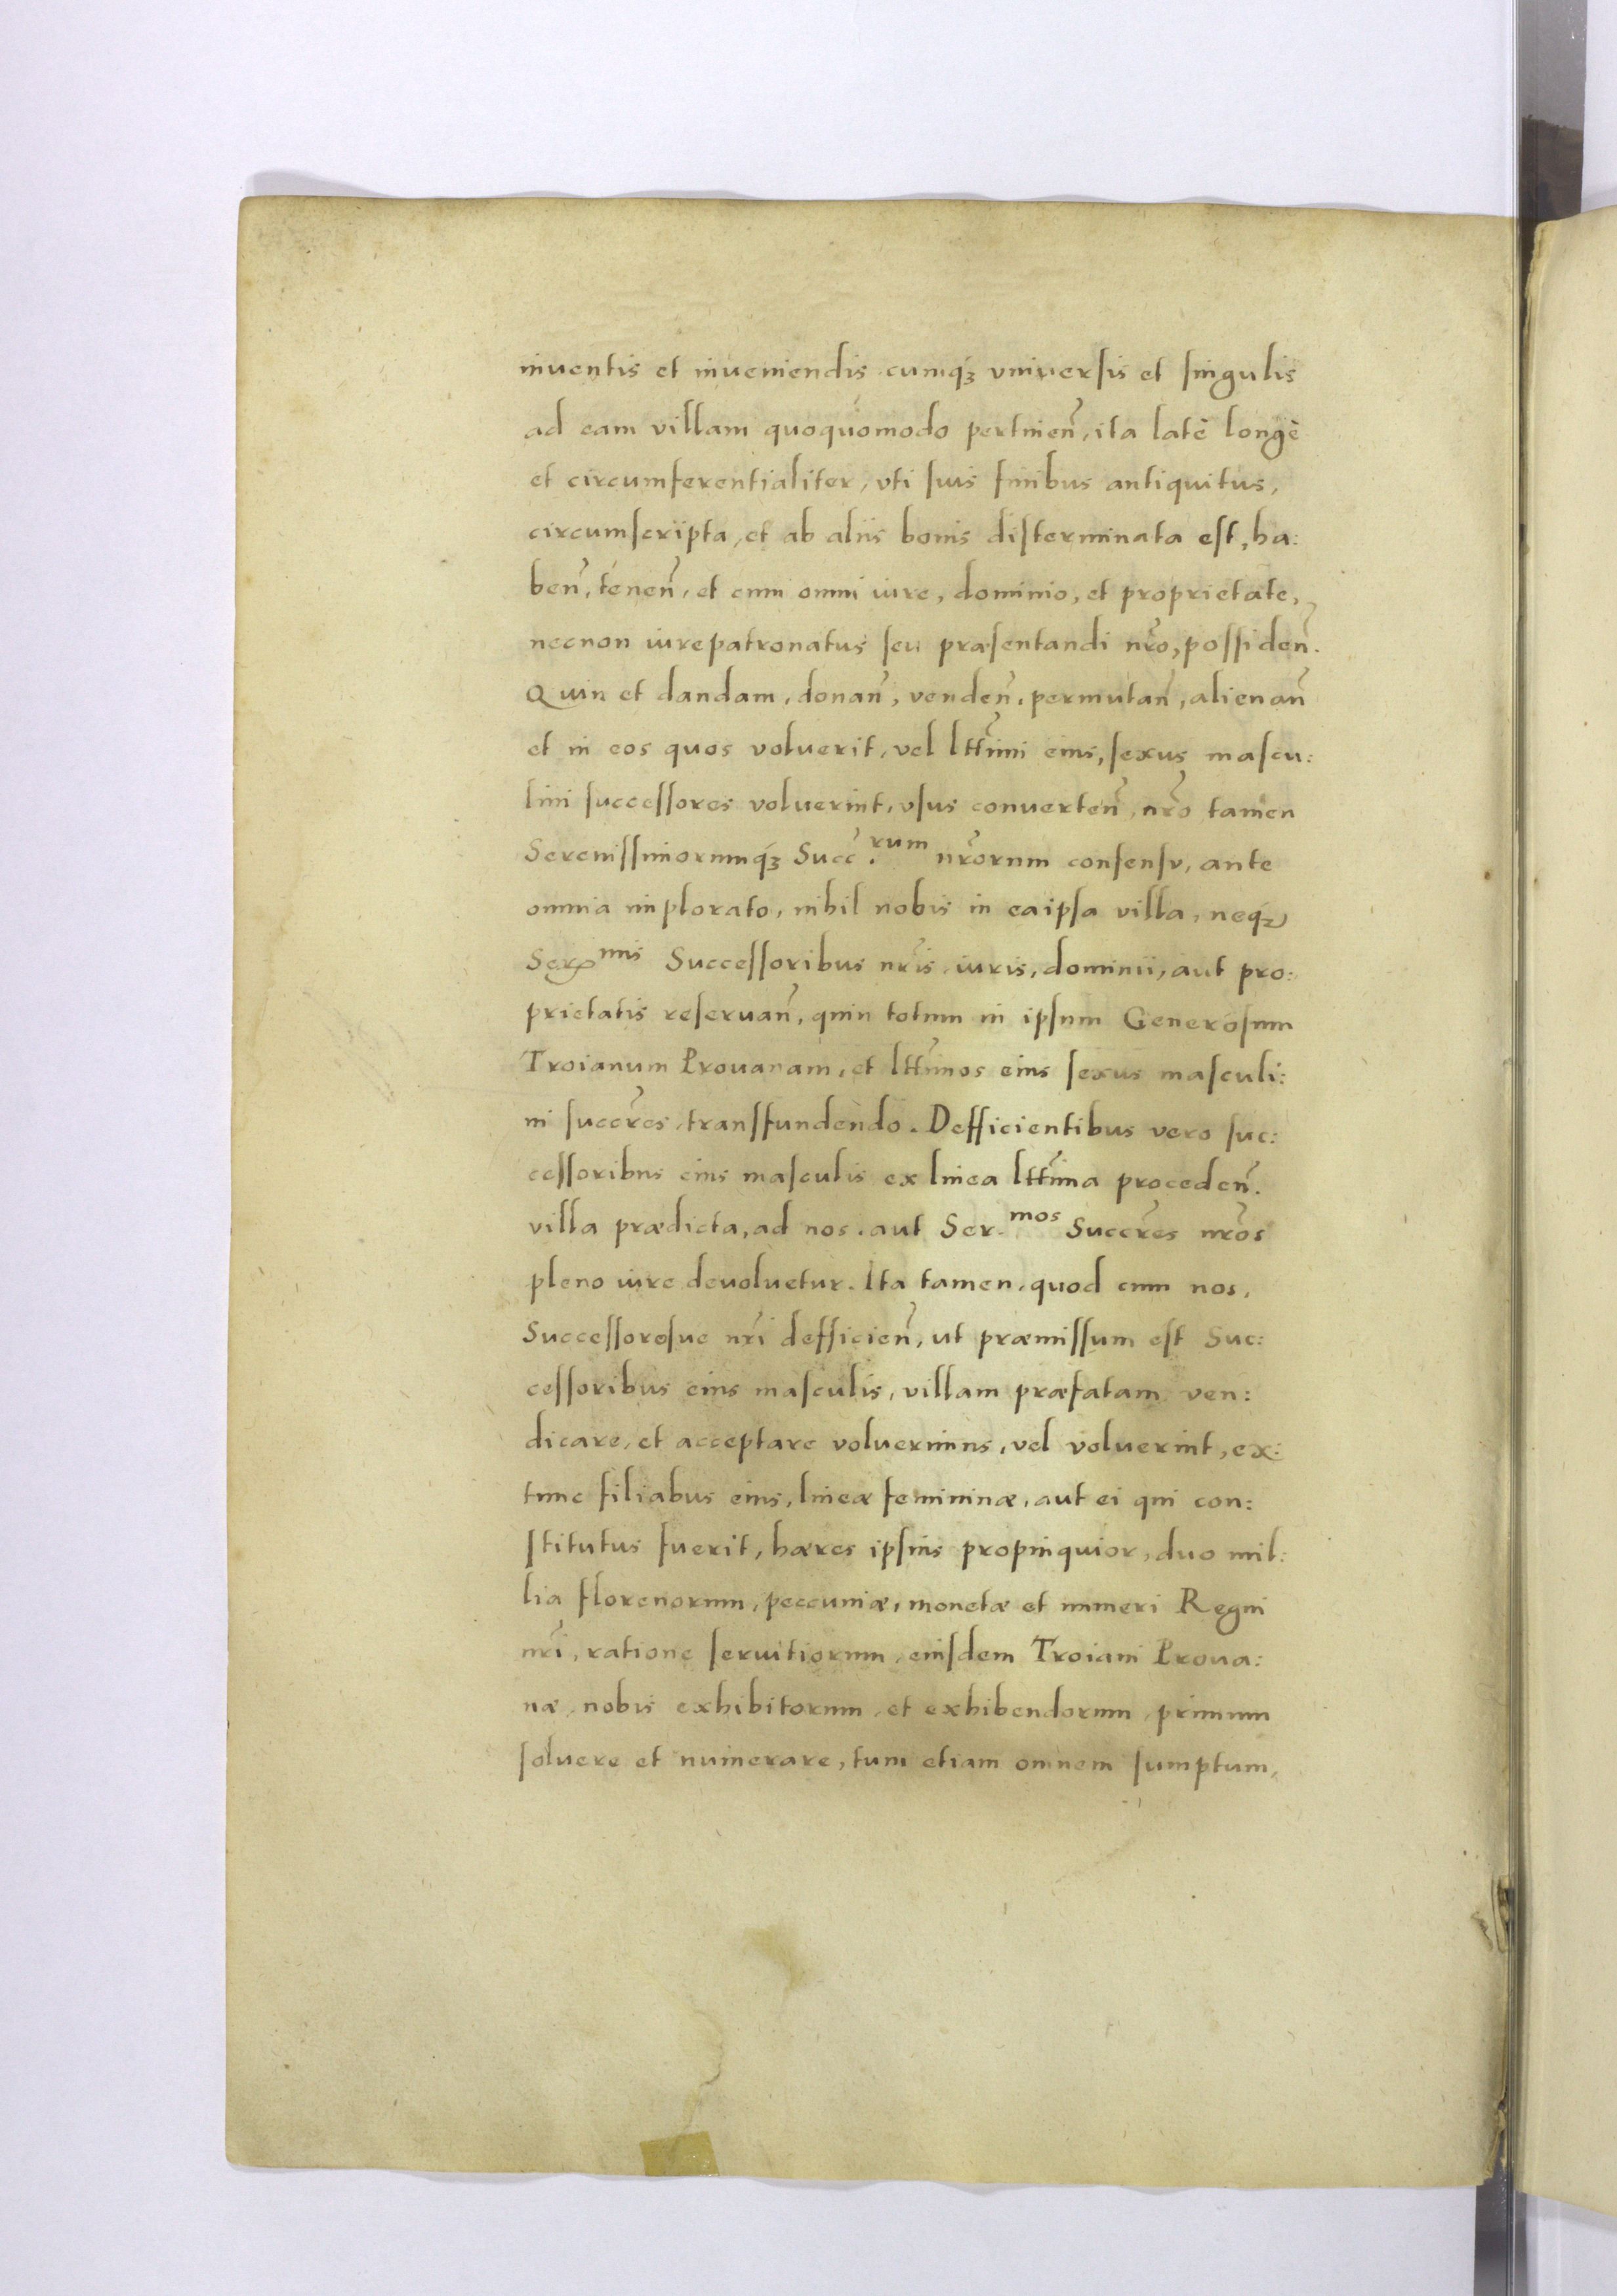 inuentis et inueniendis, cumq́ꝫ vniuersis et singulis
ad eam villam quoquomodo pertineñ, ita latè longè
et circumferentialiter, vti suis finibus antiquitus,
circumscripta, et ab aliis bonis disterminata est, ha:
beñ, teneñ, et cum omni iure, dominio, et proprietate,
necnon iurepatronatus seu præsentandi nr̃o, possideñ.
Quin et dandam, donañ, vendeñ, permutañ, alienañ
et in eos quos voluerit, vel ltt̃imi eius, sexus mascu:
lini successores voluerint, vsus conuerteñ, nr̃o tamen
Serenissimorumq́ꝫ Succ̃.rum nr̃orum consensu, ante
omnia implorato, nihil nobis in eaipsa villa, neq́ꝫ
Ser.mis Successoribus nr̃is iuris, dominii, aut pro:
prietatis reseruañ, quin totum in ipsum Generosum
Troianum Prouanam, et ltt̃imos eius sexus masculi:
ni succr̃es, transfundendo. Defficientibus vero suc:
cessoribus eius masculis ex linea ltt̃ima procedeñ.
villa prædicta, ad nos, aut Ser.mos Succr̃es nr̃os
pleno iure deuoluetur. Ita tamen, quod cum nos,
Successoresue nr̃i defficieñ, ut præmissum est Suc:
cessoribus eius masculis, villam præfatam ven:
dicare, et acceptare voluerimus, vel voluerint, ex:
tunc filiabus eius, lineæ femininæ, aut ei qui con:
stitutus fuerit, hæres ipsius propinquior, duo mil:
lia florenorum, peccuniæ, monetæ et numeri Regni
nr̃i, ratione seruitiorum, eiusdem Troiani Proua:
næ, nobis exhibitorum, et exhibendorum, primum
soluere et numerare, tum etiam omnem sumptum,